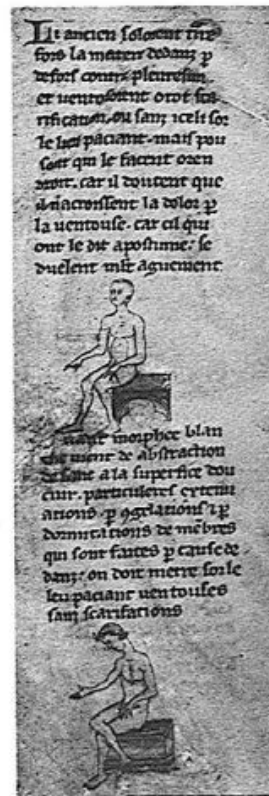 Li ancien soloient
fors la matere dedanz p
defors contre pleuresim
et ventosoient o tot sca
rification. ou sanz iceli sor
le lieu paciant. mais pou
sont qui le facent oren
droit. car il doutent que
il nacroissent la dolor p
la ventouse. car cil qui
ont le dit apostume: se
duelent mlt aguement
morphee blan
che vient de abstraction
de sanc a la superfice dou
cuir. particuleres extenu
ations. p 9gelations. p
dormitations de mebres
qui sont faites p cause de
danz: on doit metre sor le
leu paciant ventouses
sanz scarifations